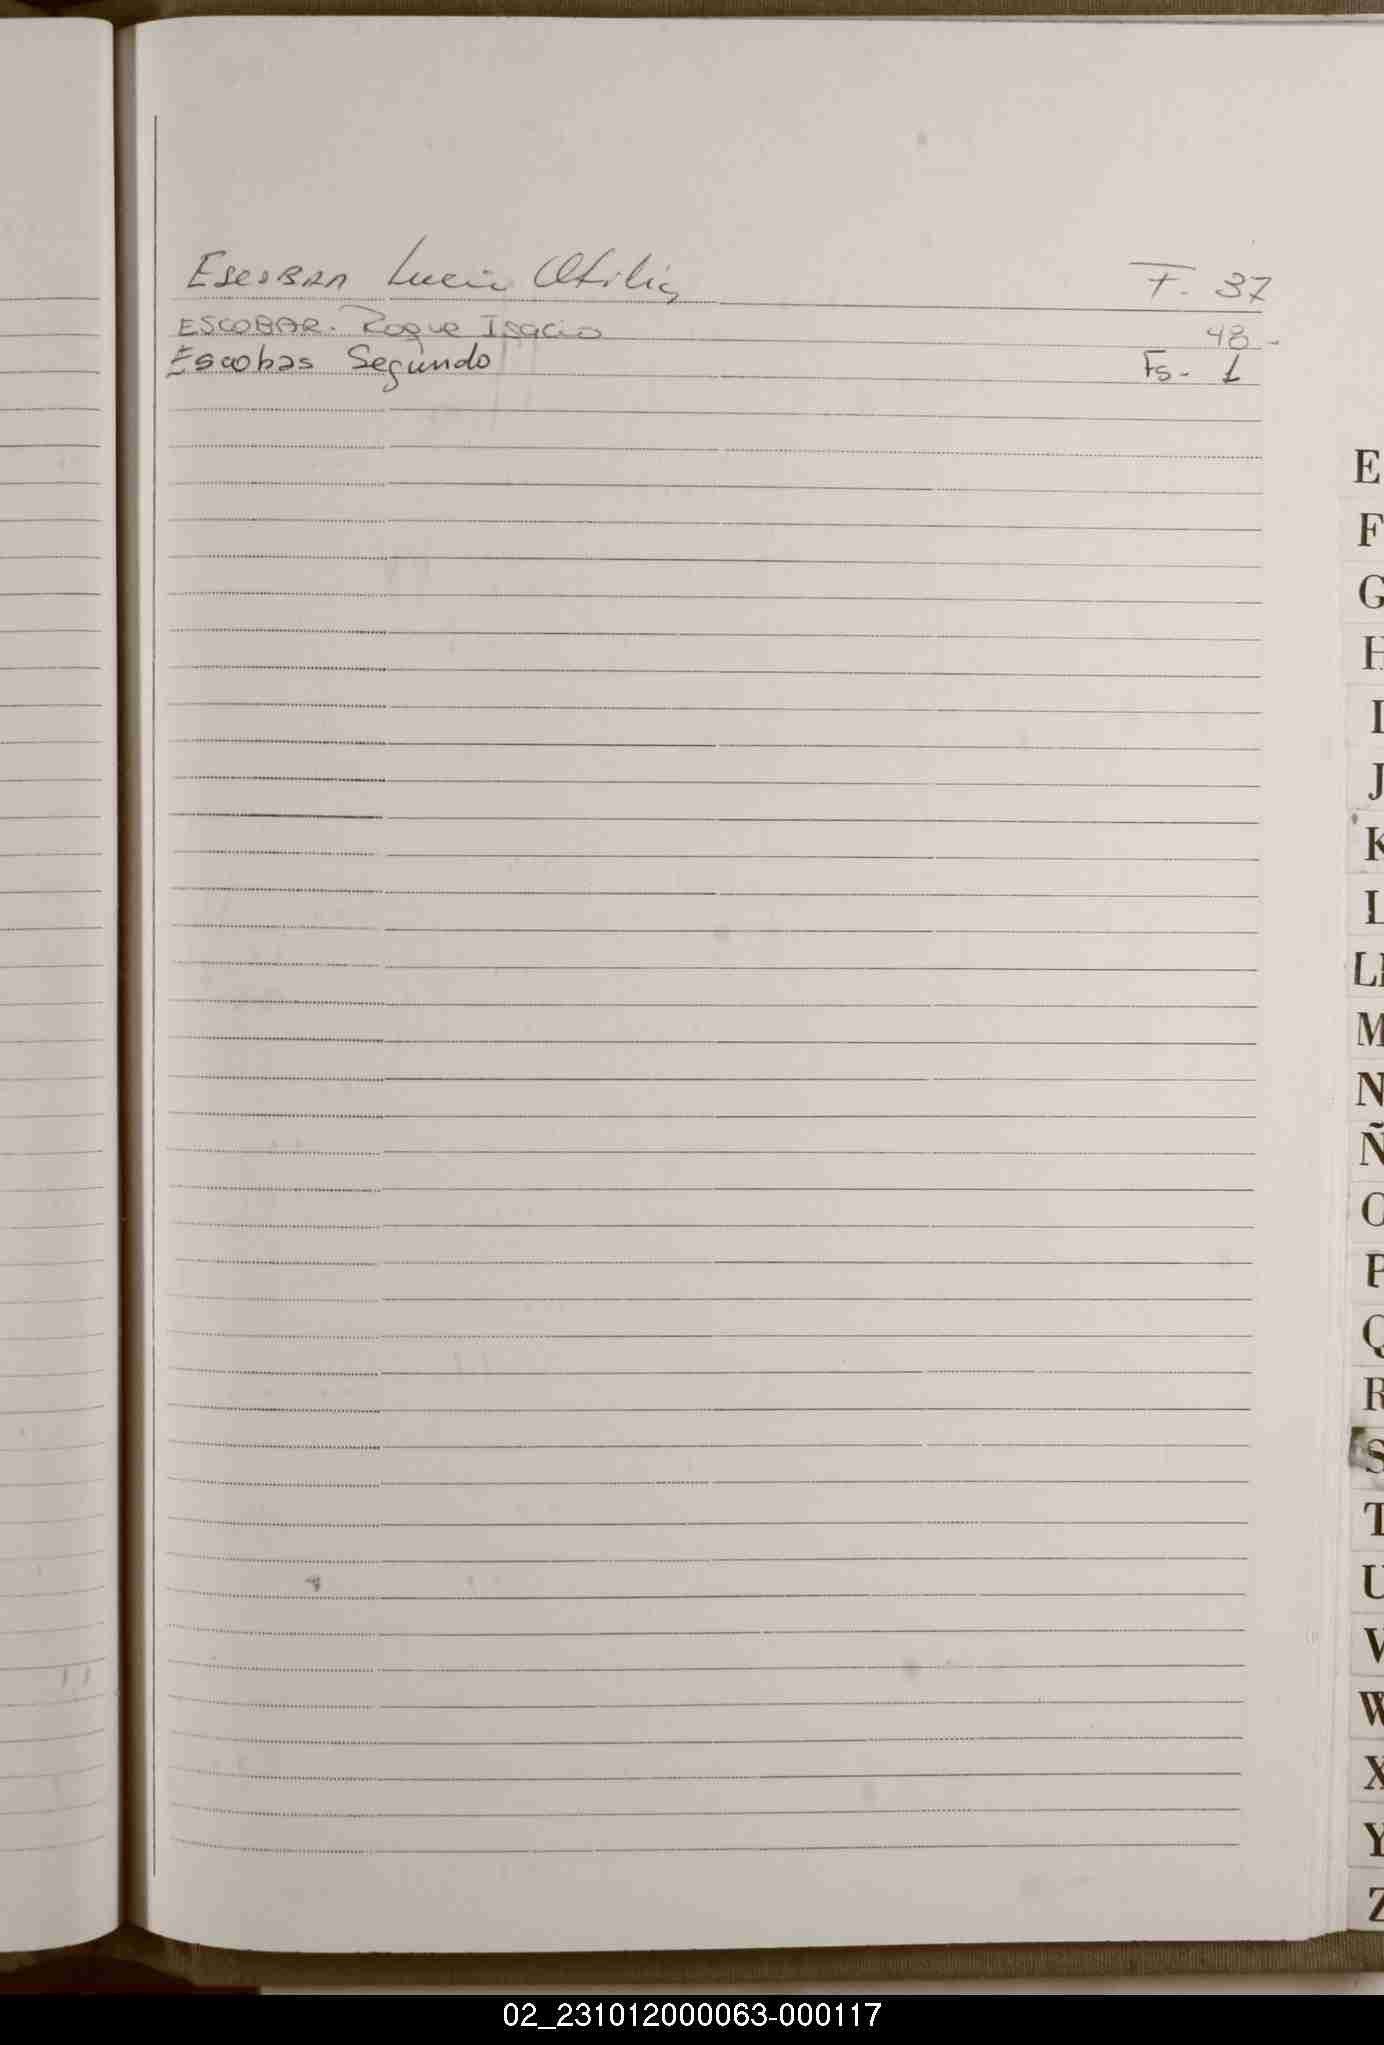 Escobar Lucia Otilia F. 37
ESCOBAR. Roque Isacio 48-
Escobas Segundo Fs- 1
E
F
G
H
I
J
K
L
LL
M
N
Ñ
O
P
Q
R
S
T
U
V
W
X
Y
Z
02_231012000063-000117